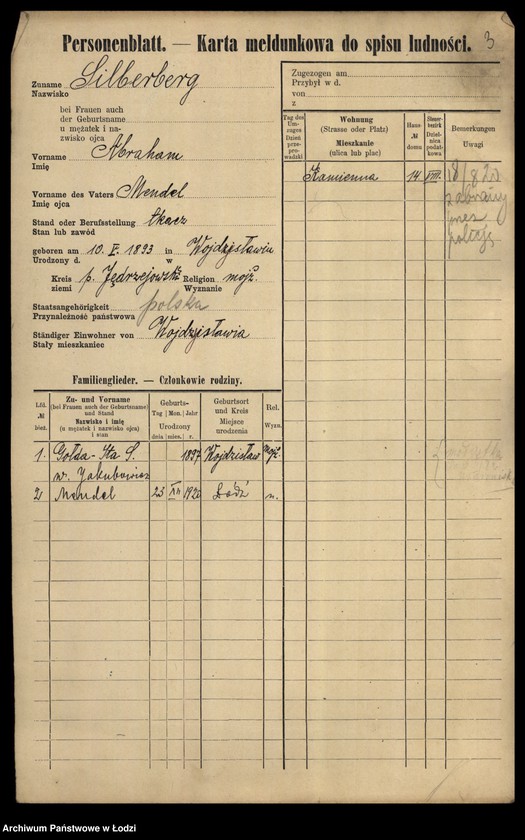 Personenblatt. — Karta meldunkowa do spisu ludności.
3
Zuname
Nazwisko
Silberberg
bei Frauen auch
der Geburtsname
u mężatek i na-
zwisko ojca
Vorname
Imię
Abraham
Vorname des Vaters
Imię ojca
Mendel
Stand oder Berufsstellung
Stan lub zawód
tkacz
geboren am 10. V. 1893 in Wojdzisławiu
Urodzony d. w
Kreis p. Jędrzejowski Religion mojż.
ziemi Wyznanie
Staatsangehörigkeit
Przynależność państwowa
polska
Ständiger Einwohner von
Stały mieszkaniec
Wojdzisławia
Zugezogen am
Przybył w d.
von
z
Tag des Um-
zuges
Dzień
prze-
prowadzki
Wohnung
(Strasse oder Platz)
Mieszkanie
(ulica lub plac)
Haus
№
domu
Steuer-
bezirk
Dziel-
nica
podat-
kowa
Bemerkungen
Uwagi
Kamienna 14 VIII. 18/8 20
zabrany
przez
policję
Familienglieder. — Członkowie rodziny.
Lfd.
№
bież.
Zu- und Vorname
(bei Frauen auch der Geburtsname)
und Stand
Nazwisko i imię
(u mężatek i nazwisko ojca)
i stan
Geburts-
Tag Mon. Jahr
Urodzony
dnia mies. r.
Geburtsort
und Kreis
Miejsce
urodzenia
Rel.
Wyzn.
1. Gołda-Ita S. 1897 Wojdzisław mojż.
w. Jakubowicz
2 Mendel 25 XII 1920 Łódź n.
Archiwum Państwowe w Łodzi